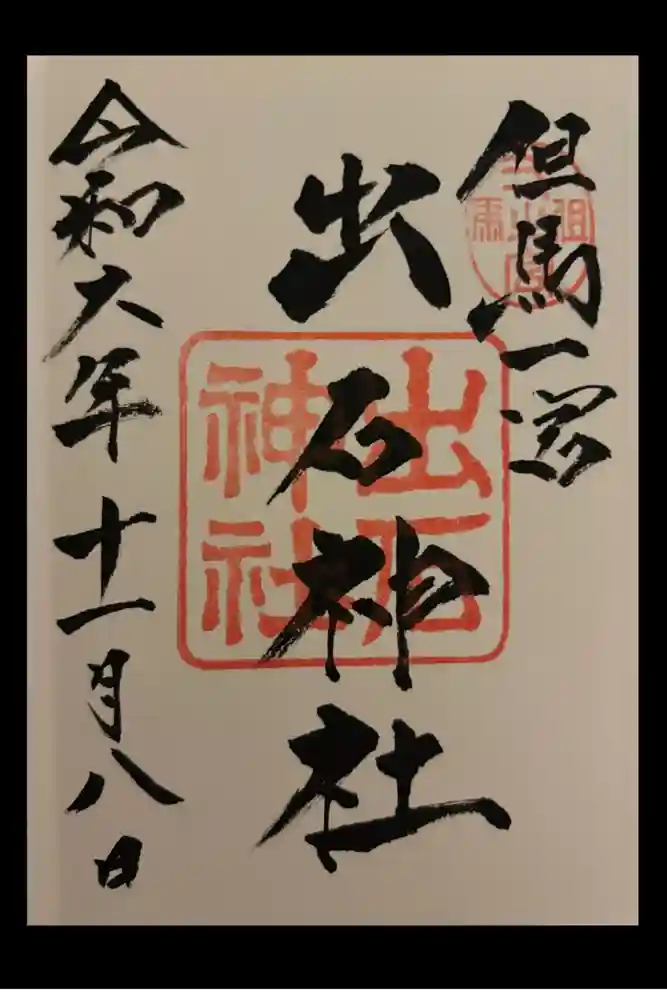 但馬一宮
出石神社
出石神社
令和六年十一月八日